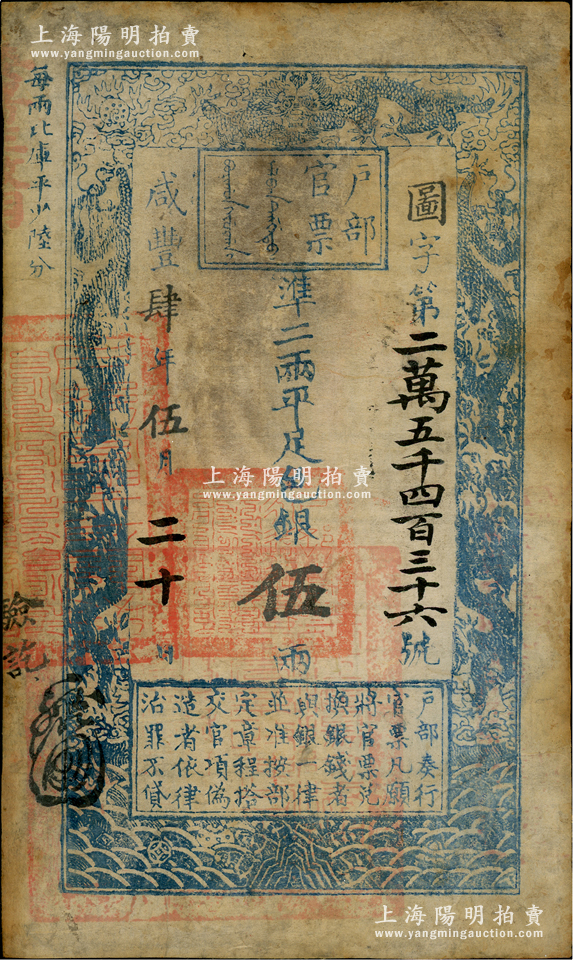 上海陽明拍賣
www.yangmingauction.com
上海陽明拍賣
www.yangmingauction.com
每兩比庫平少陸分
戶部
官票
圖字第二萬五千四百三十六號
準二兩平足色銀伍兩
咸豐肆年伍月二十日
驗訖
戶部奏行
官票凡願
將官票兌
換銀錢者
與銀一律
並准按部
定章程搭
交官項偽
造者依律
治罪不貸
上海陽明拍賣
www.yangmingauction.com
上海陽明拍賣
www.yangmingauction.com